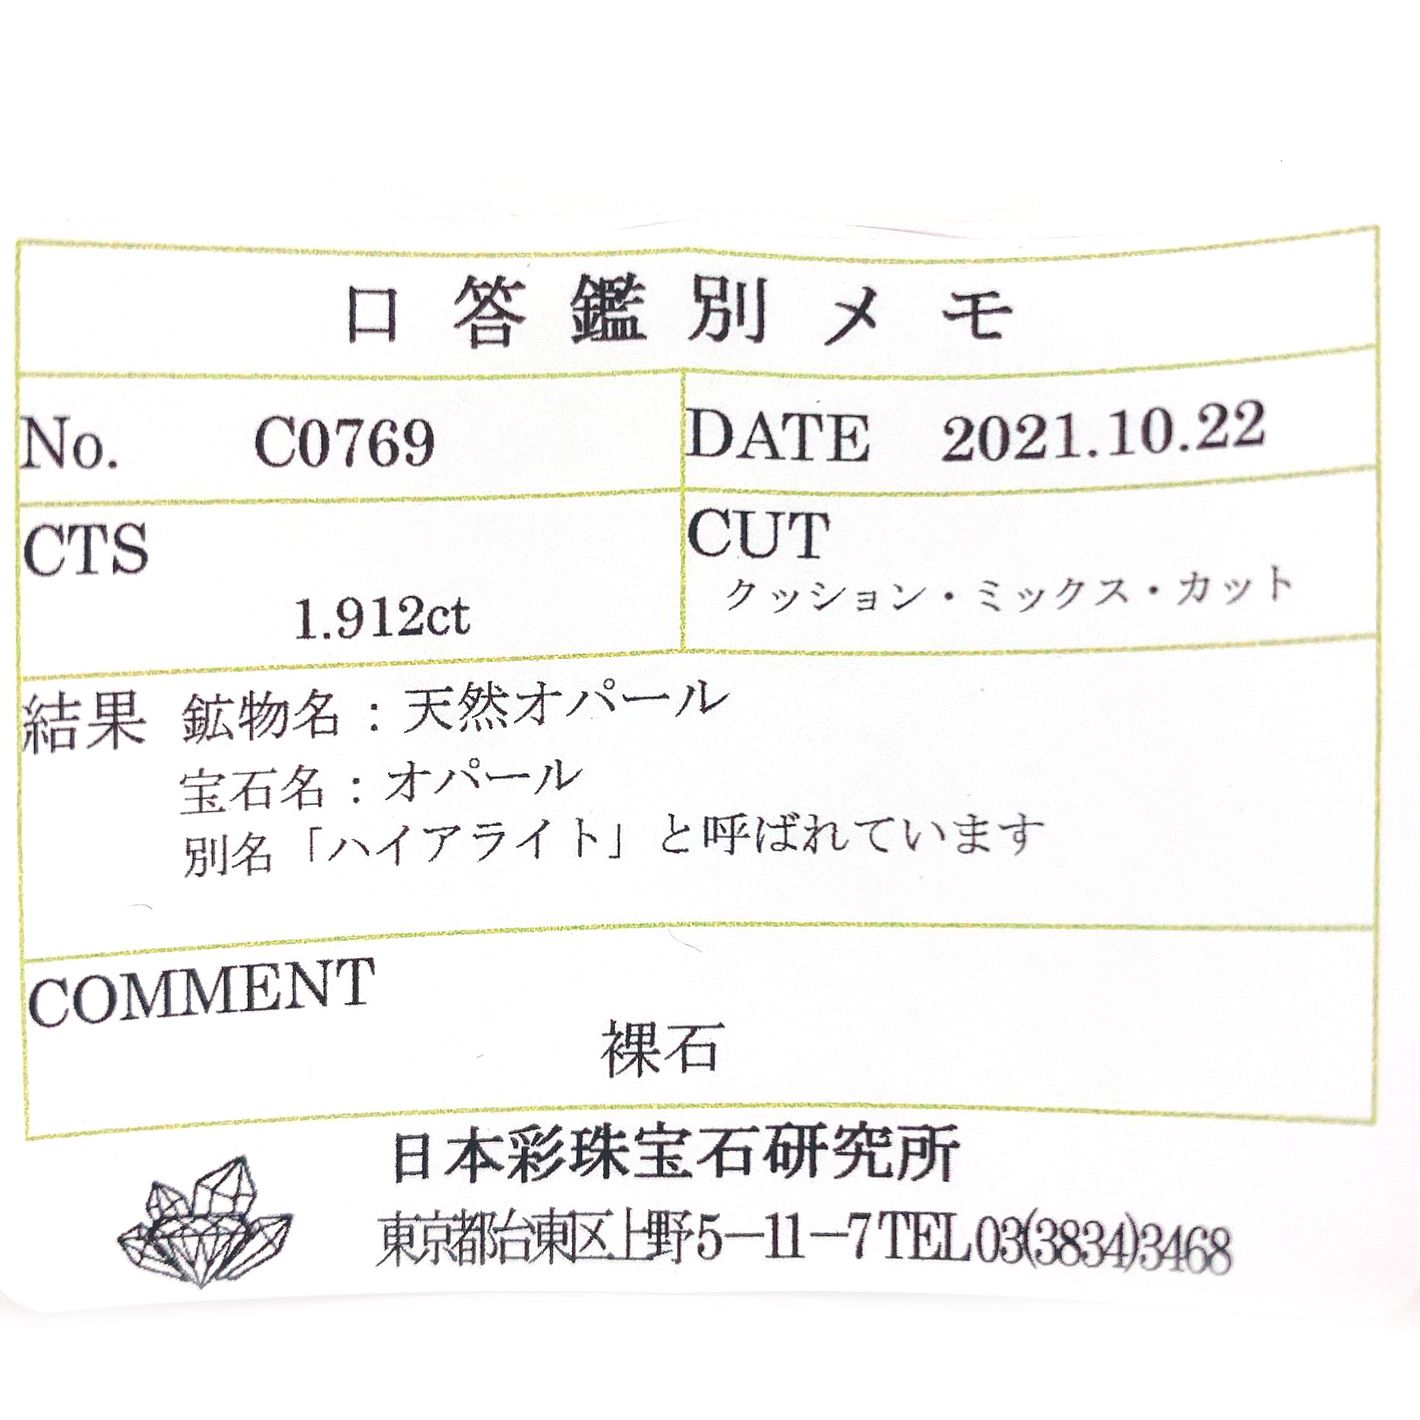 口答鑑別メモ
No. C0769
DATE 2021.10.22
CTS
1.912ct
CUT
クッション・ミックス・カット
結果 鉱物名:天然オパール
宝石名:オパール
別名「ハイアライト」と呼ばれています
COMMENT
裸石
日本彩珠宝石研究所
東京都台東区上野5-11-7 TEL 03(3834)3468